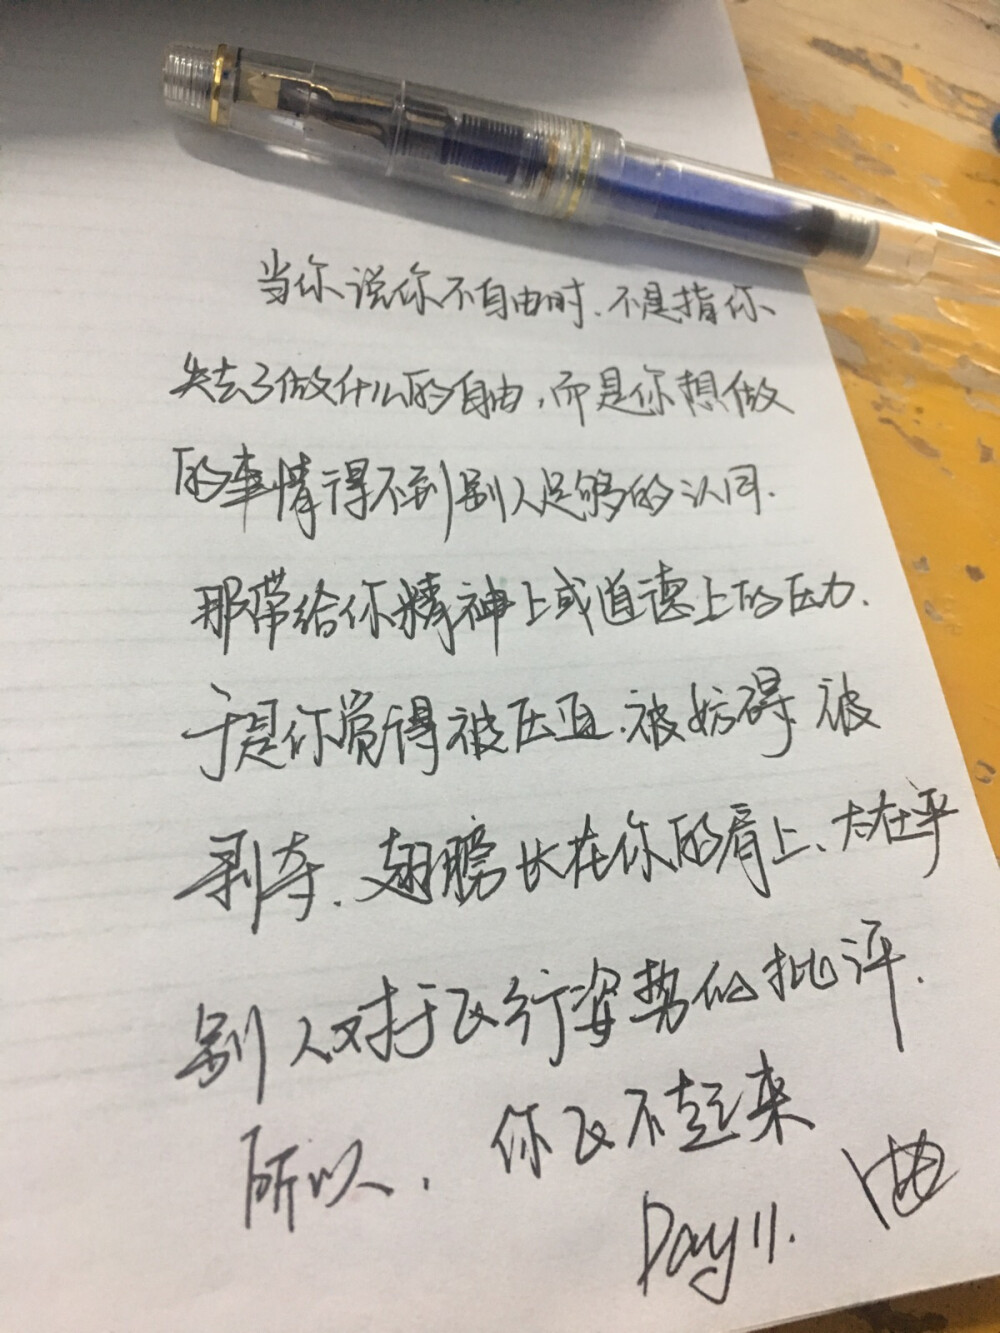 当你说你不自由时.不是指你
失去了做什么的自由,而是你想做
的事情得不到别人足够的认同.
那带给你精神上或道德上的压力.
于是你觉得被压迫.被妨碍.被
剥夺.翅膀长在你的肩上、太在乎
别人对于飞行姿势的批评.
所以.你飞不起来
Day 11.